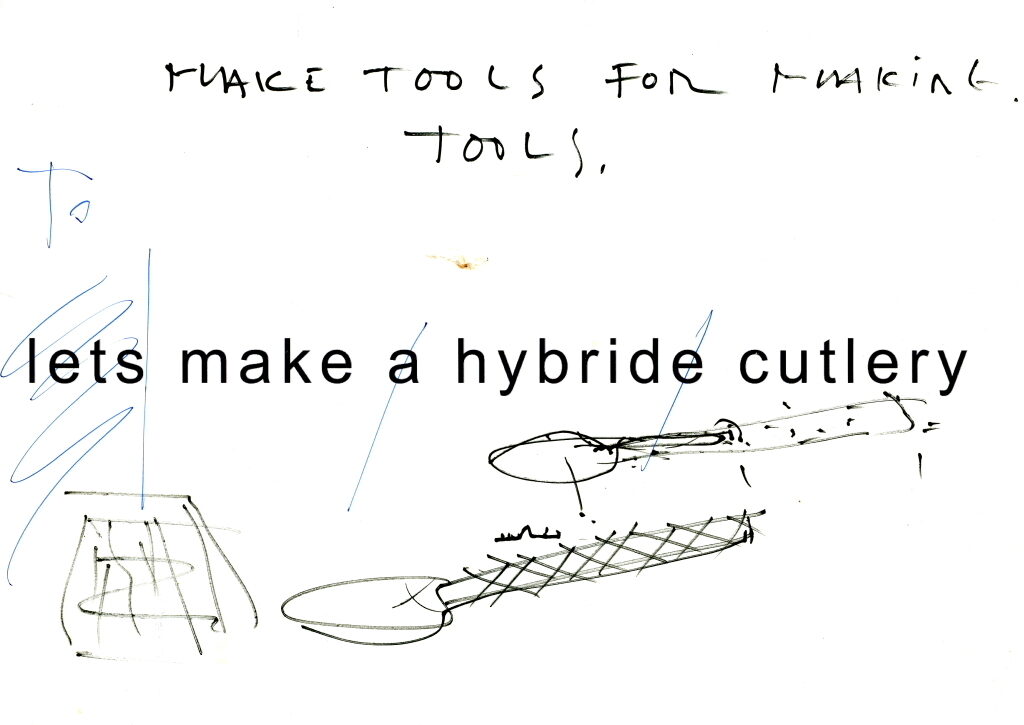 MAKE TOOLS FOR MAKING
TOOLS.
To
lets make a hybride cutlery